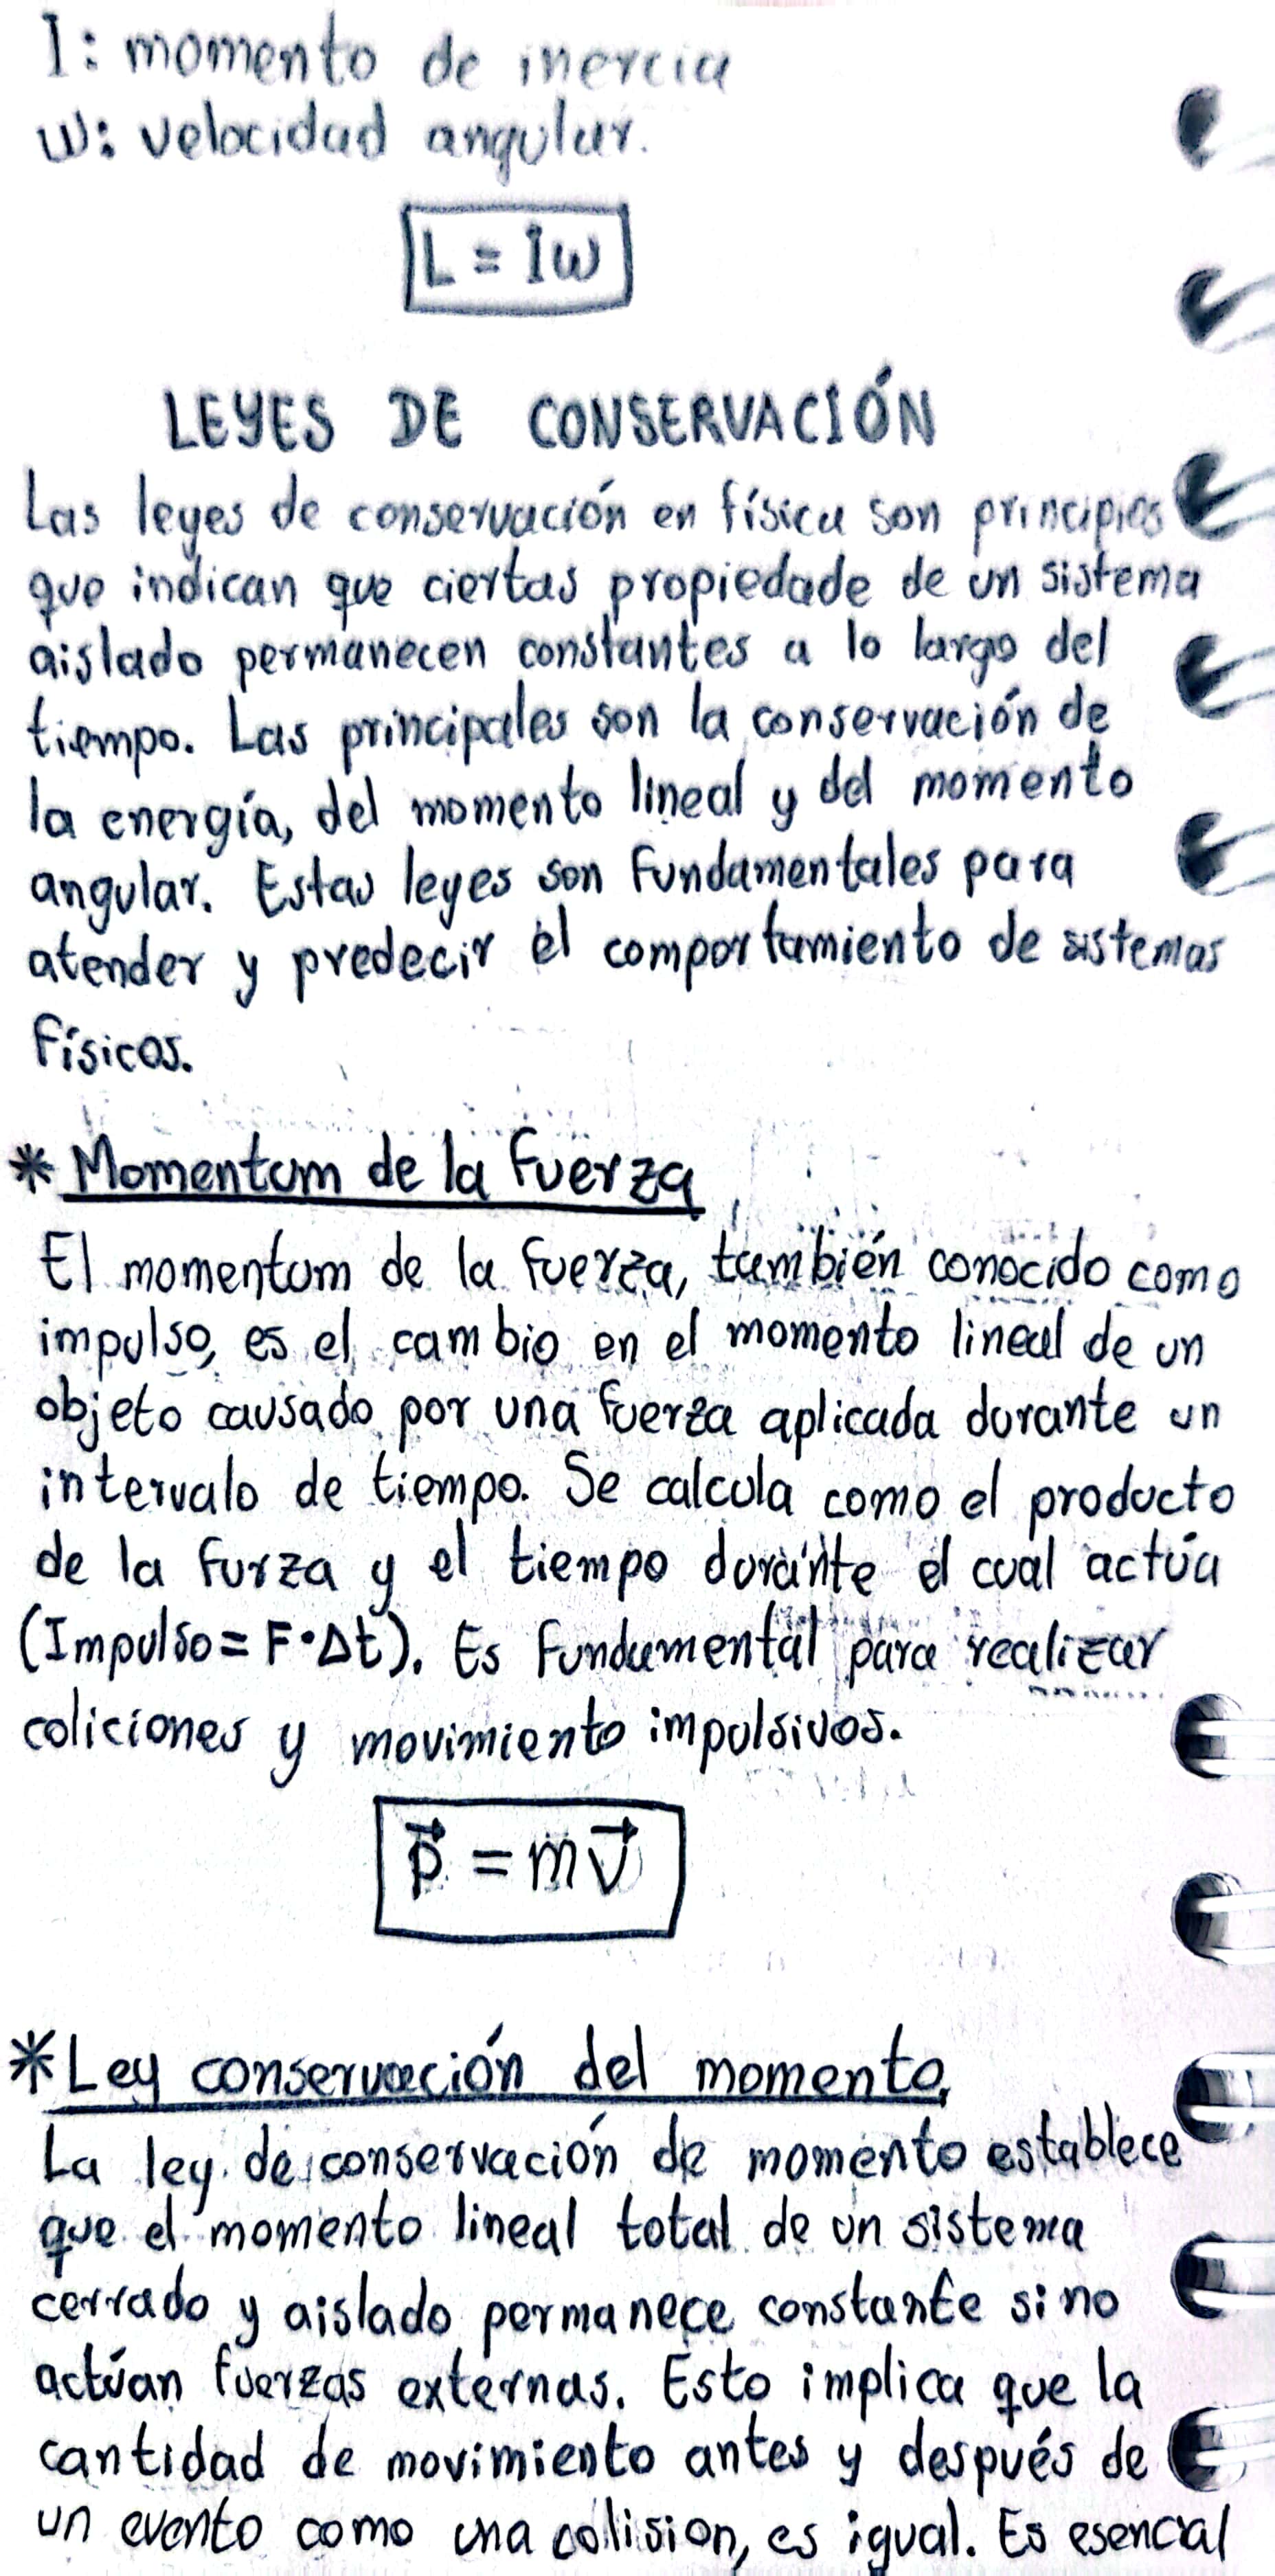 I: momento de inercia
ω: velocidad angular.
L = Iω
LEYES DE CONSERVACIÓN
Las leyes de conservación en física son principios
que indican que ciertas propiedade de un sistema
aislado permanecen constantes a lo largo del
tiempo. Las principales son la conservación de
la energía, del momento lineal y del momento
angular. Estas leyes son fundamentales para
atender y predecir el comportamiento de sistemas
físicos.
* Momentum de la fuerza
El momentum de la fuerza, también conocido como
impulso, es el cambio en el momento lineal de un
objeto causado por una fuerza aplicada durante un
intervalo de tiempo. Se calcula como el producto
de la furza y el tiempo durante el cual actúa
(Impulso = F·Δt). Es fundamental para realizar
coliciones y movimiento impulsivos.
p⃗ = mv⃗
* Ley conservación del momento.
La ley de conservación de momento establece
que el momento lineal total de un sistema
cerrado y aislado permanece constante si no
actúan fuerzas externas. Esto implica que la
cantidad de movimiento antes y después de
un evento como una colision, es igual. Es esencial